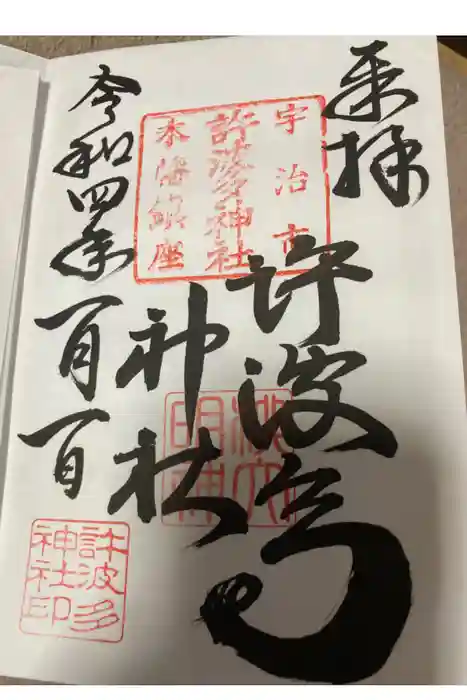 奉拝
宇治市
許波多神社
木幡鎮座
許波多
神社
明神
令和四年一月一日
許波多
神社印